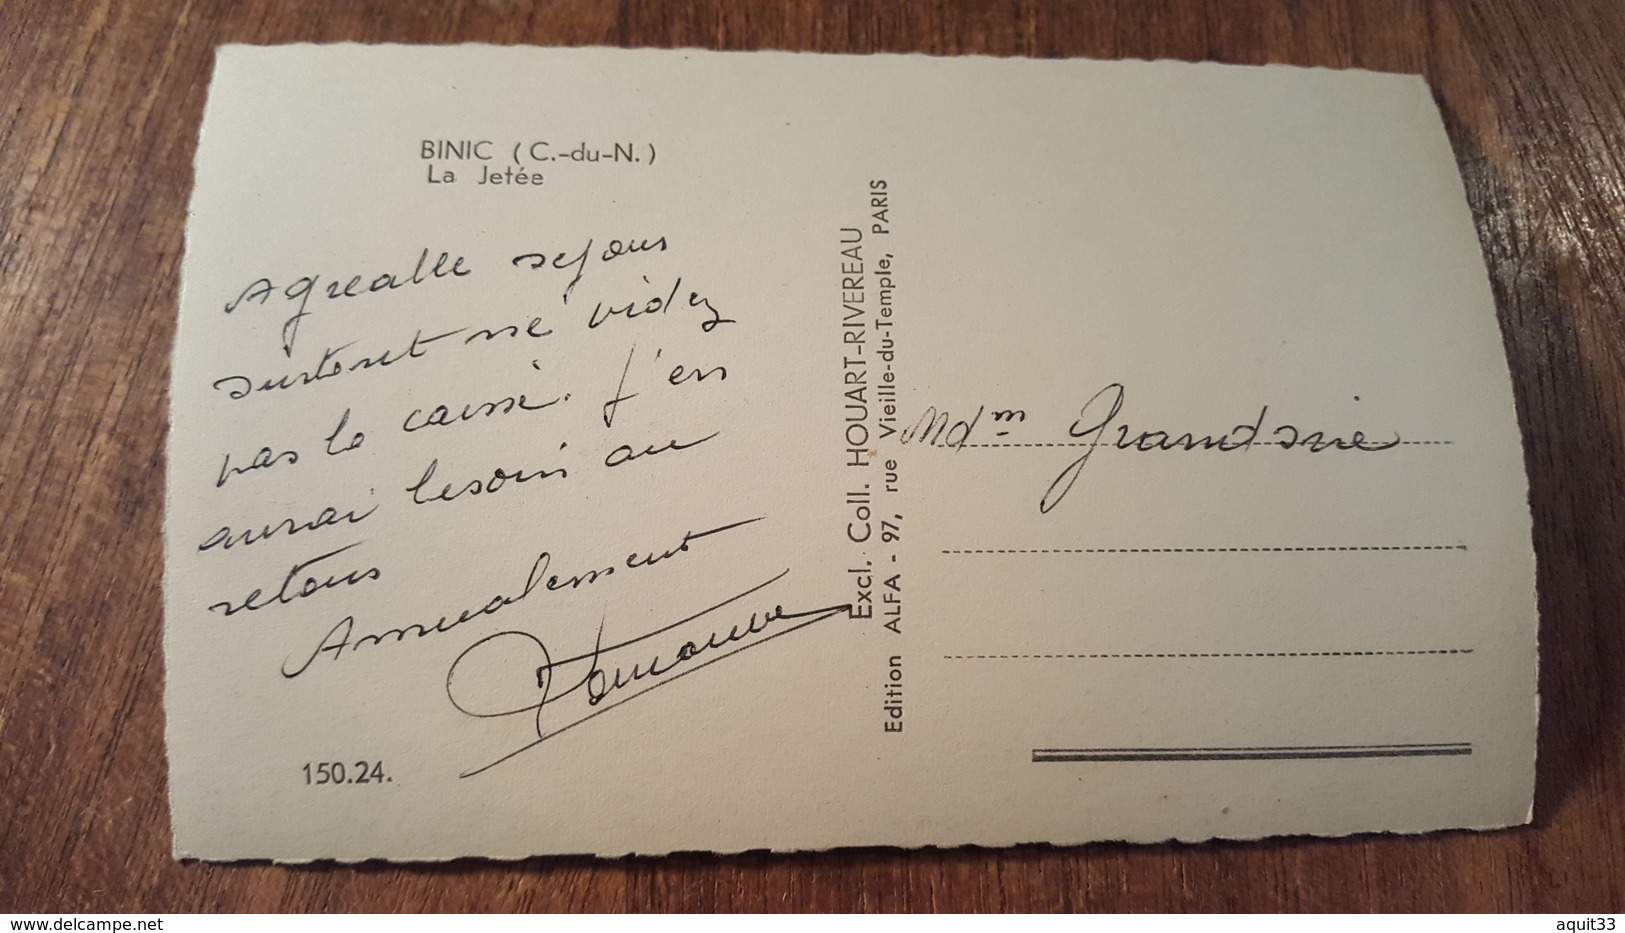 BINIC (C.-du-N.)
La Jetée
Agréable sejour
surtout ne videz
pas la caisse. J'en
aurai besoin au
retour
Amicalement
150.24.
Excl. Coll. HOUART-RIVEREAU
Edition ALFA - 97, rue Vieille-du-Temple, PARIS
Mdm Grandsire
delcampe.net
aquit33